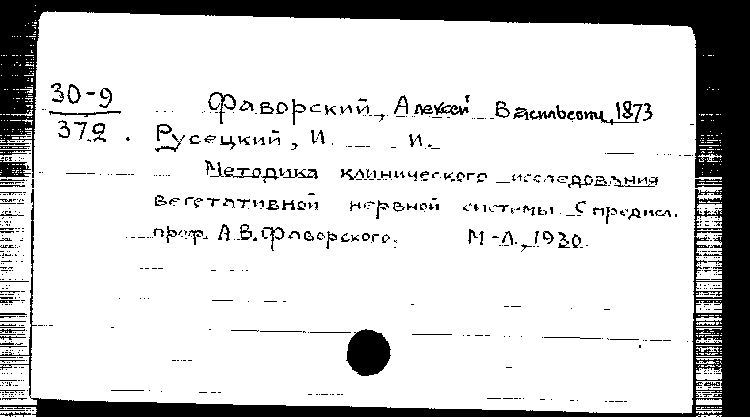 30-9 Фаворский, Алексей Васильевич, 1873
372. Русецкий, И. И.
Методика клинического исследования
вегетативной нервной системы. С предисл.
проф. А.В. Фаворского. М-Л., 1930.